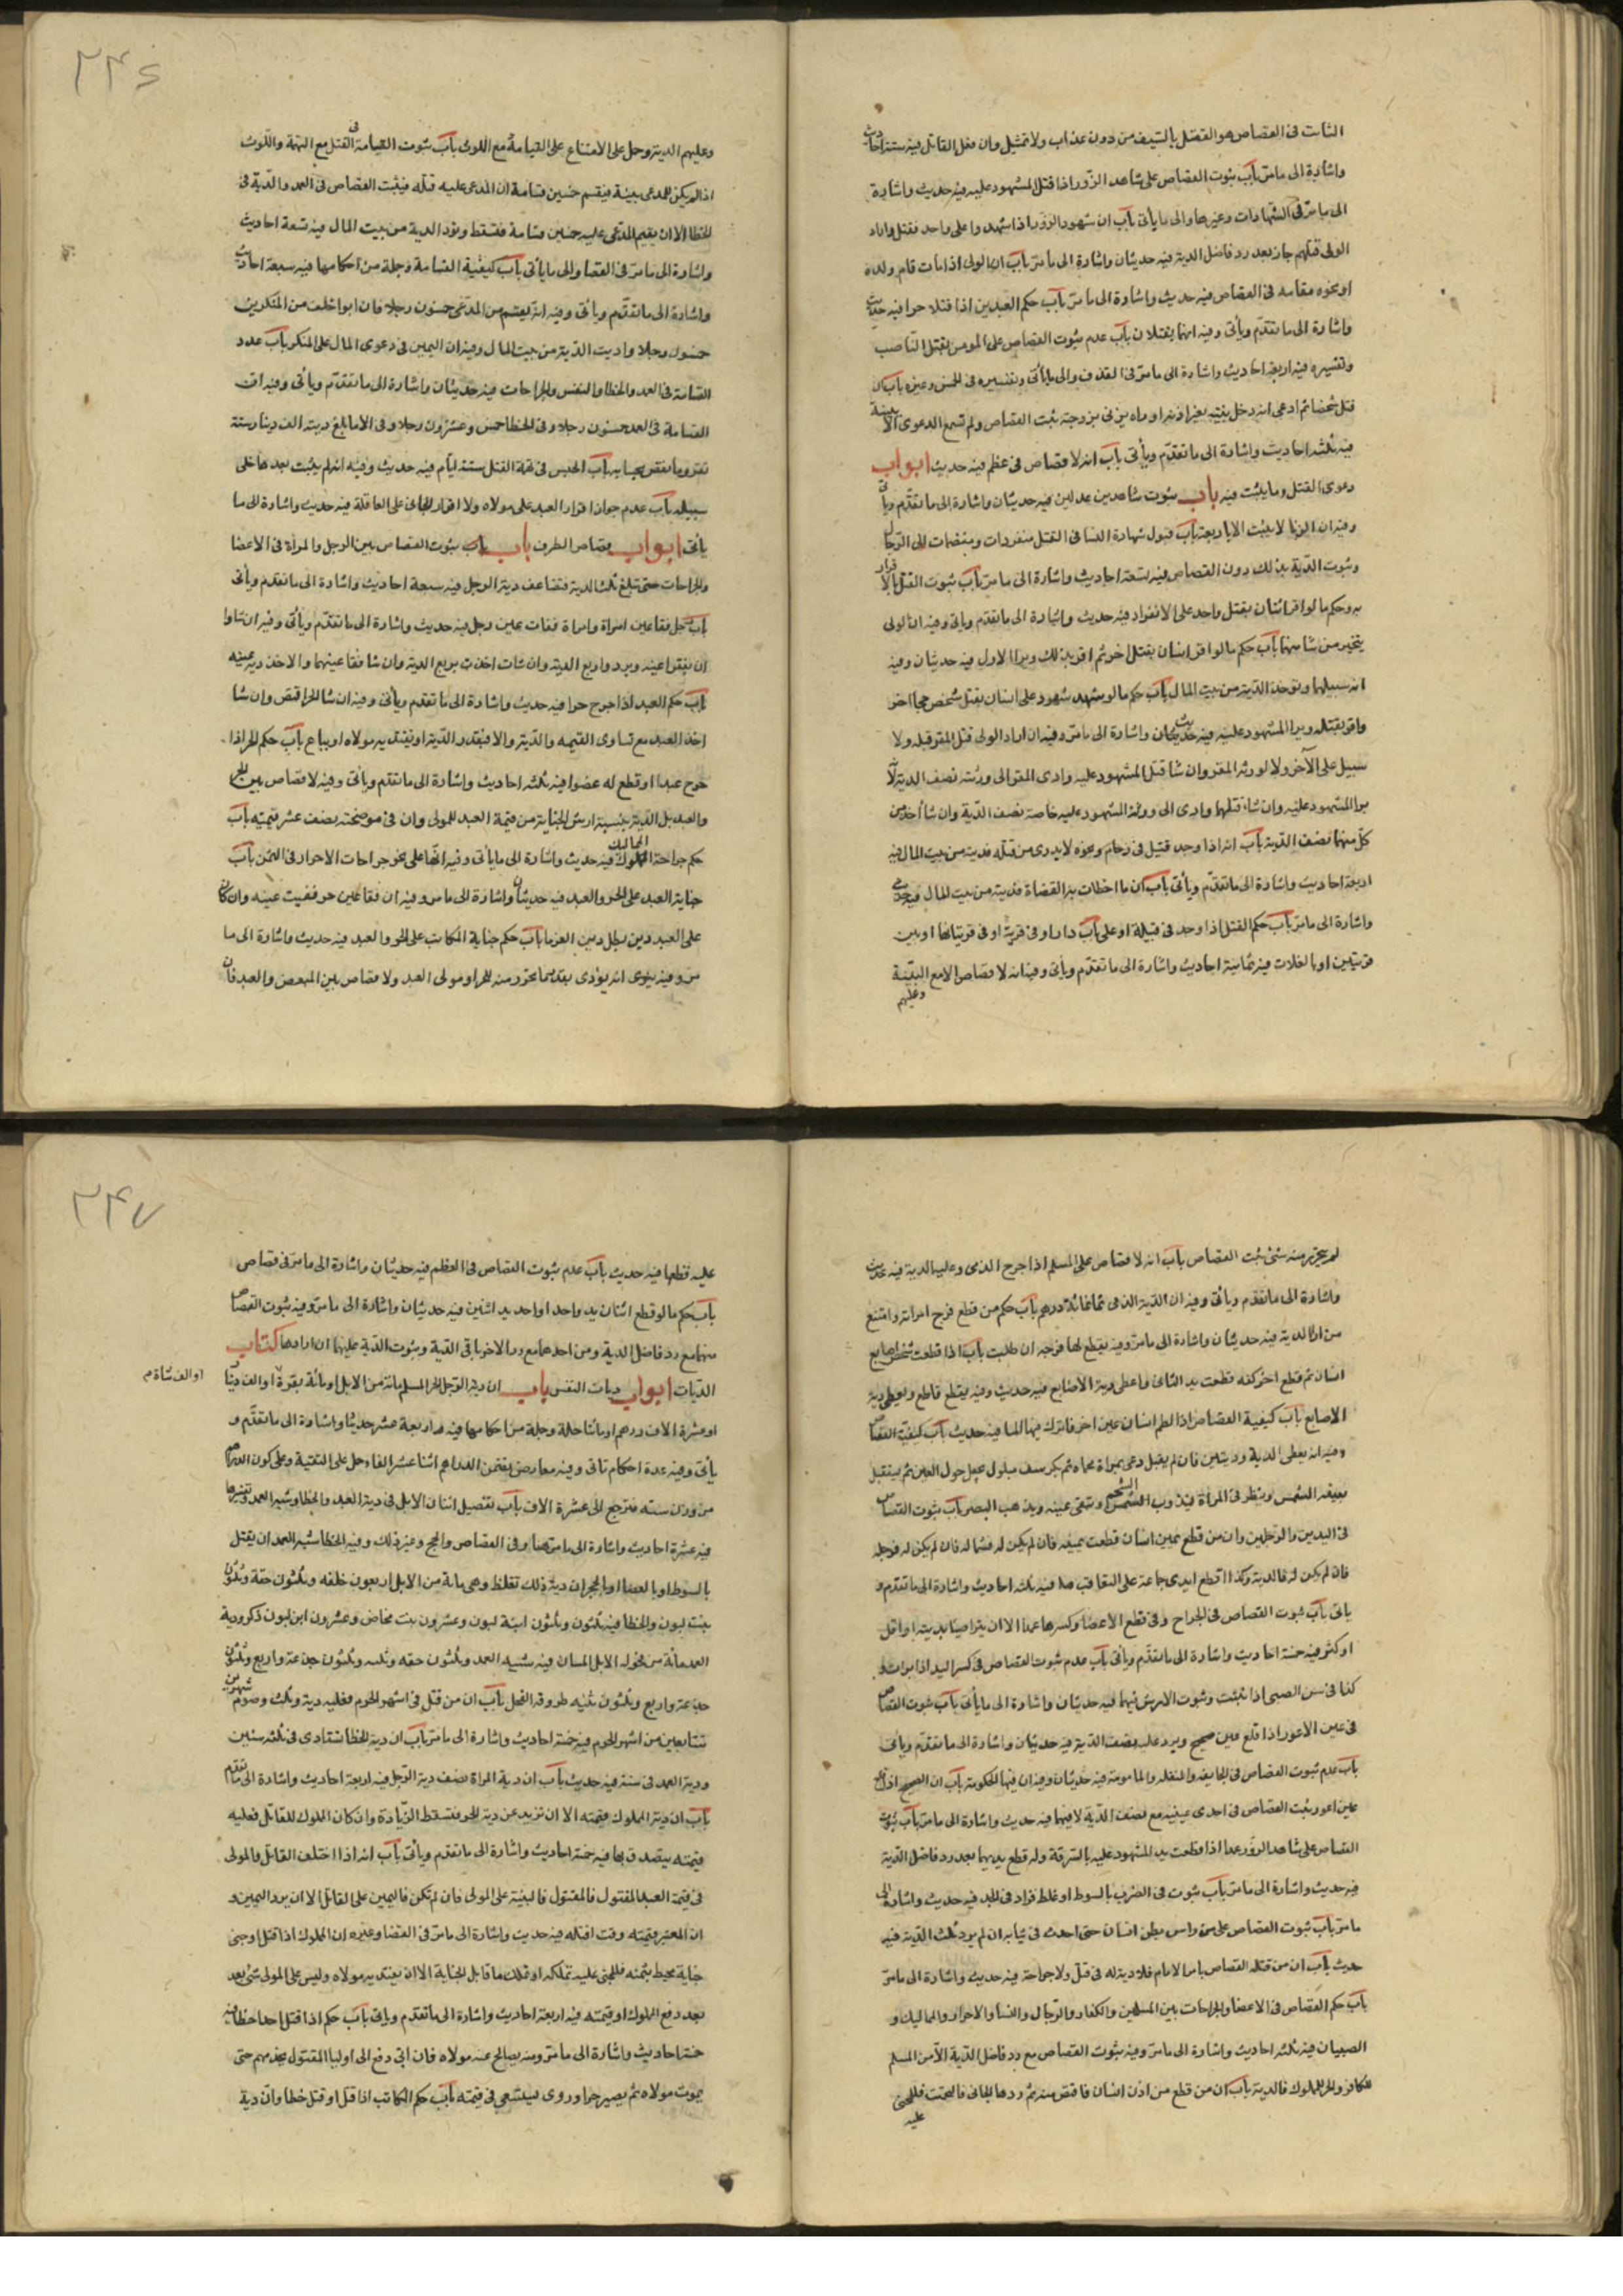 الثابت فى القصاص هو القتل بالسيف من دون عذاب ولا تمثيل وان فعل القاتل فيه ستة احاديث
واشارة الى ما مرّ باب ثبوت القصاص على شاهد الزور اذا قتل المشهود عليه فيه حديث واشارة
الى ما مرّ فى الشهادات وغيرها والى ما يأتى باب ان شهود الزور اذا شهدوا على واحد فقتل واراد
الولى قتلهم جاز بعد رد فاضل الدية فيه حديثان واشارة الى ما مرّ باب ان الولى اذا مات قام ولده
او نحوه مقامه فى القصاص فيه حديث واشارة الى ما مرّ باب حكم العبدين اذا قتلا حرا فيه حديث
واشارة الى ما تقدّم ويأتى وفيه انهما يقتلان باب عدم ثبوت القصاص على المؤمن بقتل الناصب
وتفسيره فيه اربعة احاديث واشارة الى ما مرّ فى القذف والى ما يأتى وتفسيره فى الخمس وغيره باب ان من
قتل شخصا ثم ادعى انه دخل بيته بغير اذنه او راه يزنى بزوجته يثبت القصاص ولم تسمع الدعوى الا ببينة
فيه ثلثه احاديث واشارة الى ما تقدّم ويأتى باب انه لا قصاص فى عظم فيه حديث ابواب
دعوى القتل وما يثبت فيه باب ثبوت شاهدين عدلين فيه حديثان واشارة الى ما تقدّم ويأتى
وفيه ان الزنا لا يثبت الا باربعة باب قبول شهادة النسا فى القتل منفردات ومنضمات الى الرجال
وثبوت الدّية بذلك دون القصاص فيه تسعة احاديث واشارة الى ما مرّ باب ثبوت القتل بالاقرار
به وحكم ما لو اقر اثنان بقتل واحد على الانفراد فيه حديث واشارة الى ما تقدم ويأتى وفيه ان الولى
يتخير من شا منهما باب حكم ما لو اقر انسان بقتل اخر ثم اقر بذلك وبرا الاول فيه حديثان وفيه
انه سبيلهما وتوخذ الدّية من بيت المال باب حكم ما لو شهد شهود على انسان بقتل شخص فجا اخر
واقر بقتله وبرا المشهود عليه فيه حديثان واشارة الى ما مرّ وفيه ان اراد الولى قتل المقر قتله ولا
سبيل على الآخر ولا لورثه المقر وان شا قتل المشهود عليه وادى المقر الى ورثته نصف الدية
برا المشهود عليه وان شاء قتلهما وادى الى ورثة المشهود عليه خاصة نصف الدّية وان شا أخذ من
كل منهما نصف الدّية باب انه اذا وجد قتيل فى زحام ونحوه لا يدرى من قتله فديته من بيت المال فيه
اربعة احاديث واشارة الى ما تقدّم ويأتى باب ان ما اخطات به القضاة فديته من بيت المال فيه حديث
واشارة الى ما مرّ باب حكم القتل اذا وجد فى قبيلة او على باب دار او فى قرية او فى قريتاها او بين
قريتين او بالفلات فيه ثمانية احاديث واشارة الى ما تقدّم ويأتى وفيه انه لا قصاص الا مع البيّنة
وعليهم
٢٤٦
وعليهم الدية وحمل على الامتناع على القسامة مع اللوث باب ثبوت القسامة فى القتل مع التهمة واللوث
اذا لم يكن للمدعى بينة فيقسم خمسين قسامة ان المدعى عليه قتله فيثبت القصاص فى العمد والدّية فى
الخطا الا ان يقيم المدّعى عليه خمسين قسامة فتسقط وتؤد الدية من بيت المال فيه تسعة احاديث
واشارة الى ما مرّ فى القضا والى ما يأتى باب كيفيّة القسامة وجملة من احكامها فيه سبعة احاديث
واشارة الى ما تقدّم ويأتى وفيه انه يقسم من المدّعى خمسون رجلا فان ابوا حلف من المنكرين
خمسون رجلا واديت الدّية من بيت المال وفيه ان اليمين فى دعوى المال على المنكر باب عدد
القسامة فى العمد والخطا والنفس والجراحات فيه حديثان واشارة الى ما تقدّم ويأتى وفيه ان
القسامة فى العمد خمسون رجلا وفى الخطا خمس وعشرون رجلا وفى الاما بلغ ديته الف دينار ستة
نفر وما نقص بحسابه باب الحبس فى تهمة القتل ستة ايّام فيه حديث وفيه انه لم يثبت بعدها خلى
سبيله باب عدم جواز اقرار العبد على مولاه ولا اقرار الجانى على العاقلة فيه حديث واشارة الى ما
يأتى ابواب قصاص الطرف باب باب ثبوت القصاص بين الرجل والمرأة فى الاعضا
والجراحات حتى تبلغ ثلث الدية فتضاعف دية الرجل فيه سبعة احاديث واشارة الى ما تقدم ويأتى
باب رجل فقا عين امراة وامراة فقات عين رجل فيه حديث واشارة الى ما تقدّم ويأتى وفيه ان شاوا
ان يفقوا عينه ويرد واربع الدية وان شات اخذت بربع الدية وان شا فقا عينهما والا اخذ دية عينه
باب حكم العبد اذا جرح حرا فيه حديث واشارة الى ما تقدم ويأتى وفيه ان شا الحر اقتص وان شا
اخذ العبد مع تساوى القيمه والدّية والا فبقدر الدّية او يفتديه مولاه او يباع باب حكم الحر اذا
جرح عبدا او قطع له عضوا فيه ثلثه احاديث واشارة الى ما تقدم ويأتى وفيه لا قصاص بين الحر
والعبد بل الدّية بنسبة ارش الجناية من قيمة العبد للمولى وان فى موضحته نصف عشر قيمته باب
حكم جراحة المماليك فيه حديث واشارة الى ما يأتى وفيه انّها على نحو جراحات الاحرار فى الثمن باب
جناية العبد على الحر والعبد فيه حديثان واشارة الى ما مر وفيه ان فقا عين حر ففيت عينه وان كان
على العبد دين بطل دين الغرما باب حكم جناية المكاتب على الحر والعبد فيه حديث واشارة الى ما
مر وفيه يروى انه يؤدى بقدر ما تحرر منه للحر او مولى العبد ولا قصاص بين المبعض والعبد فان
لم يتحرر منه شئ يثبت القصاص باب انه لا قصاص على المسلم اذا جرح الذمى وعليه الدية فيه حديث
واشارة الى ما تقدم ويأتى وفيه ان الدّية الذمى ثمانمائة درهم باب حكم من قطع فرج امراته وامتنع
من ادا الدية فيه حديثان واشارة الى ما مرّ وفيه يقطع لها فرجه ان طلبت باب اذا قطعت شخص اصابع
انسان ثم قطع اخر كفه قطعت يد الثانى واعطى دية الاصابع فيه حديث وفيه يقطع قاطع ويعطى دية
الاصابع باب كيفية القصاص اذا لطم انسان عين اخر فانزل فيها الما فيه حديث باب كيفيّة القصاص
وفيه انه يعطى الدية وديتين فان لم يقبل دعى بمراة محماة ثم بكرسف مبلول يجعل حول العين ثم يستقبل
بعينه الشمس وينظر فى المرأة فيذوب الشحم وتبقى عينه ويذهب البصر باب ثبوت القصاص
فى اليدين والرّجلين وان من قطع يمين انسان قطعت يمينه فان لم يكن له فشماله فان لم يكن له فرجله
فان لم يكن له فالدية وكذا اقطع ايدى جماعة على التعاقب فيه ثلثه احاديث واشارة الى ما تقدّم و
ياتى باب ثبوت القصاص فى الجراح وفى قطع الاعضا وكسرها عمدا الا ان يتراضيا بدية او اقل
او كثر فيه خمسة احاديث واشارة الى ما تقدّم ويأتى باب عدم ثبوت القصاص فى كسر اليد اذا برات و
كذا فى سن الصبى اذا نبتت وثبوت الارش فيهما فيه حديثان واشارة الى ما يأتى باب ثبوت القصاص
فى عين الاعور اذا قلع عين صحيح ويرد عليه نصف الدّية فيه حديثان واشارة الى ما تقدّم ويأتى
باب عدم ثبوت القصاص فى الجايفه والمنقله والمامومة فيه حديثان وفيه ان فيها الحكومة باب ان الصحيح اذا قلع
عين اعور يثبت القصاص فى احدى عينيه مع نصف الدّية لا فيهما فيه حديث واشارة الى ما مرّ باب ثبوت
القصاص على شاهد الزور عمدا اذا قطعت يد المشهود عليه بالسرقة وله قطع يديهما بعد رد فاضل الدّية
فيه حديث واشارة الى ما مرّ باب ثبوت فى الضرب بالسوط او غلط فزاد فى الجلد فيه حديث واشارة الى
ما مرّ باب ثبوت القصاص على من داس بطن انسان حتى احدث فى ثيابه ان لم يرد ثلث الدّية فيه
حديث باب ان من قتله القصاص بامر الامام فلا دية له فى قتل ولا جراحة فيه حديث واشارة الى ما مرّ
باب حكم القصاص فى الاعضا والجراحات بين المسلمين والكفار والرّجال والنسا والاحرار والمماليك و
الصبيان فيه ثلثه احاديث واشارة الى ما مرّ وفيه ثبوت القصاص مع رد فاضل الدّية الا من المسلم
للكافر والحر للملوك فالدية باب ان من قطع من اذن انسان فاقتص منه ثم ردها الجانى فالتحمت فللمجنى
عليه
٢٤٧
عليه قطعها فيه حديث باب عدم ثبوت القصاص فى العظم فيه حديثان واشارة الى ما مرّ فى قصاص
باب حكم ما لو قطع اثنان يد واحد او احد يد اثنين فيه حديثان واشارة الى ما مرّ وفيه ثبوت القصاص
منهما مع رد فاضل الدية ومن احدهما مع رد الاخر باقى الدّية وثبوت الدّية عليهما ان ارادها كتاب
الدّيات ابواب ديات النفس باب ان دية الرّجل الحر المسلم مائة من الابل او مائة بقرة او الف دينار
او الف شاة م
او عشرة الاف درهم او مائتا حلة وجملة من احكامها فيه اربعة عشر حديثا واشارة الى ما تقدّم و
يأتى وفيه عدة احكام تاتى وفيه معارض يتضمن الدراهم اثنا عشر الفا وحمل على التقية وعلى كون الدراهم
من وزن سته فترجع الى عشرة الاف باب تفصيل اسنان الابل فى دية العمد والخطا وشبه العمد وتفسيرها
فيه عشرة احاديث واشارة الى ما مرّ هنا وفى القصاص والحج وغير ذلك وفيه الخطا شبه العمد ان يقتل
بالسوط او بالعصا او بالحجر ان دية ذلك تغلظ وهى مائة من الابل اربعون خلفه وثلثون حقة وثلثون
بنت لبون والخطا فيه ثلثون وثلثون ابنة لبون وعشرون بنت مخاض وعشرون ابن لبون ذكر ودية
العمد مائة من فحوله الابل المسان فيه شبيه العمد وثلثون حقه وثلث وثلثون جذعة واربع وثلثون
جذعة واربع وثلثون ثنيه طروقة الفحل باب ان من قتل فى اشهر الحرم فعليه دية وثلث وصوم شهرين
متتابعين من اشهر الحرم فيه خمسة احاديث واشارة الى ما مرّ باب ان دية الخطا تستادى فى ثلثه سنين
ودية العمد فى سنة فيه حديث باب ان دية المراة نصف دية الرّجل فيه اربعة احاديث واشارة الى ما تقدم
باب ان دية المملوك قيمته الا ان تزيد عن دية الحر فتسقط الزّيادة وان كان المملوك للقاتل فعليه
قيمته يتصدق بها فيه خمسة احاديث واشارة الى ما تقدم ويأتى باب انه اذا اختلف القاتل والمولى
فى قيمة العبد المقتول فالمقتول فالبيّنة على المولى فان لم تكن فاليمين على القاتل الا ان يرد اليمين و
ان المعتبر قيمته وقت قتله فيه حديث واشارة الى ما مرّ فى القضا وغيره ان المملوك اذا قتل او جنى
جناية تحيط بثمنه فللمجنى عليه تملكه او تملك ما قابل الجناية الا ان يفتديه مولاه وليس على المولى شئ بعد
بعد دفع المملوك او قيمته فيه اربعة احاديث واشارة الى ما تقدم وياتى باب حكم اذا قتل احدا خطا فيه
خمسة احاديث واشارة الى ما مرّ ومنه يصالح عنه مولاه فان ابى دفع الى اوليا المقتول يخدمهم حتى
يموت مولاه ثم يصير حرا وروى ليستسعى فى قيمته باب حكم المكاتب اذا قتل او قتل خطا وان دية